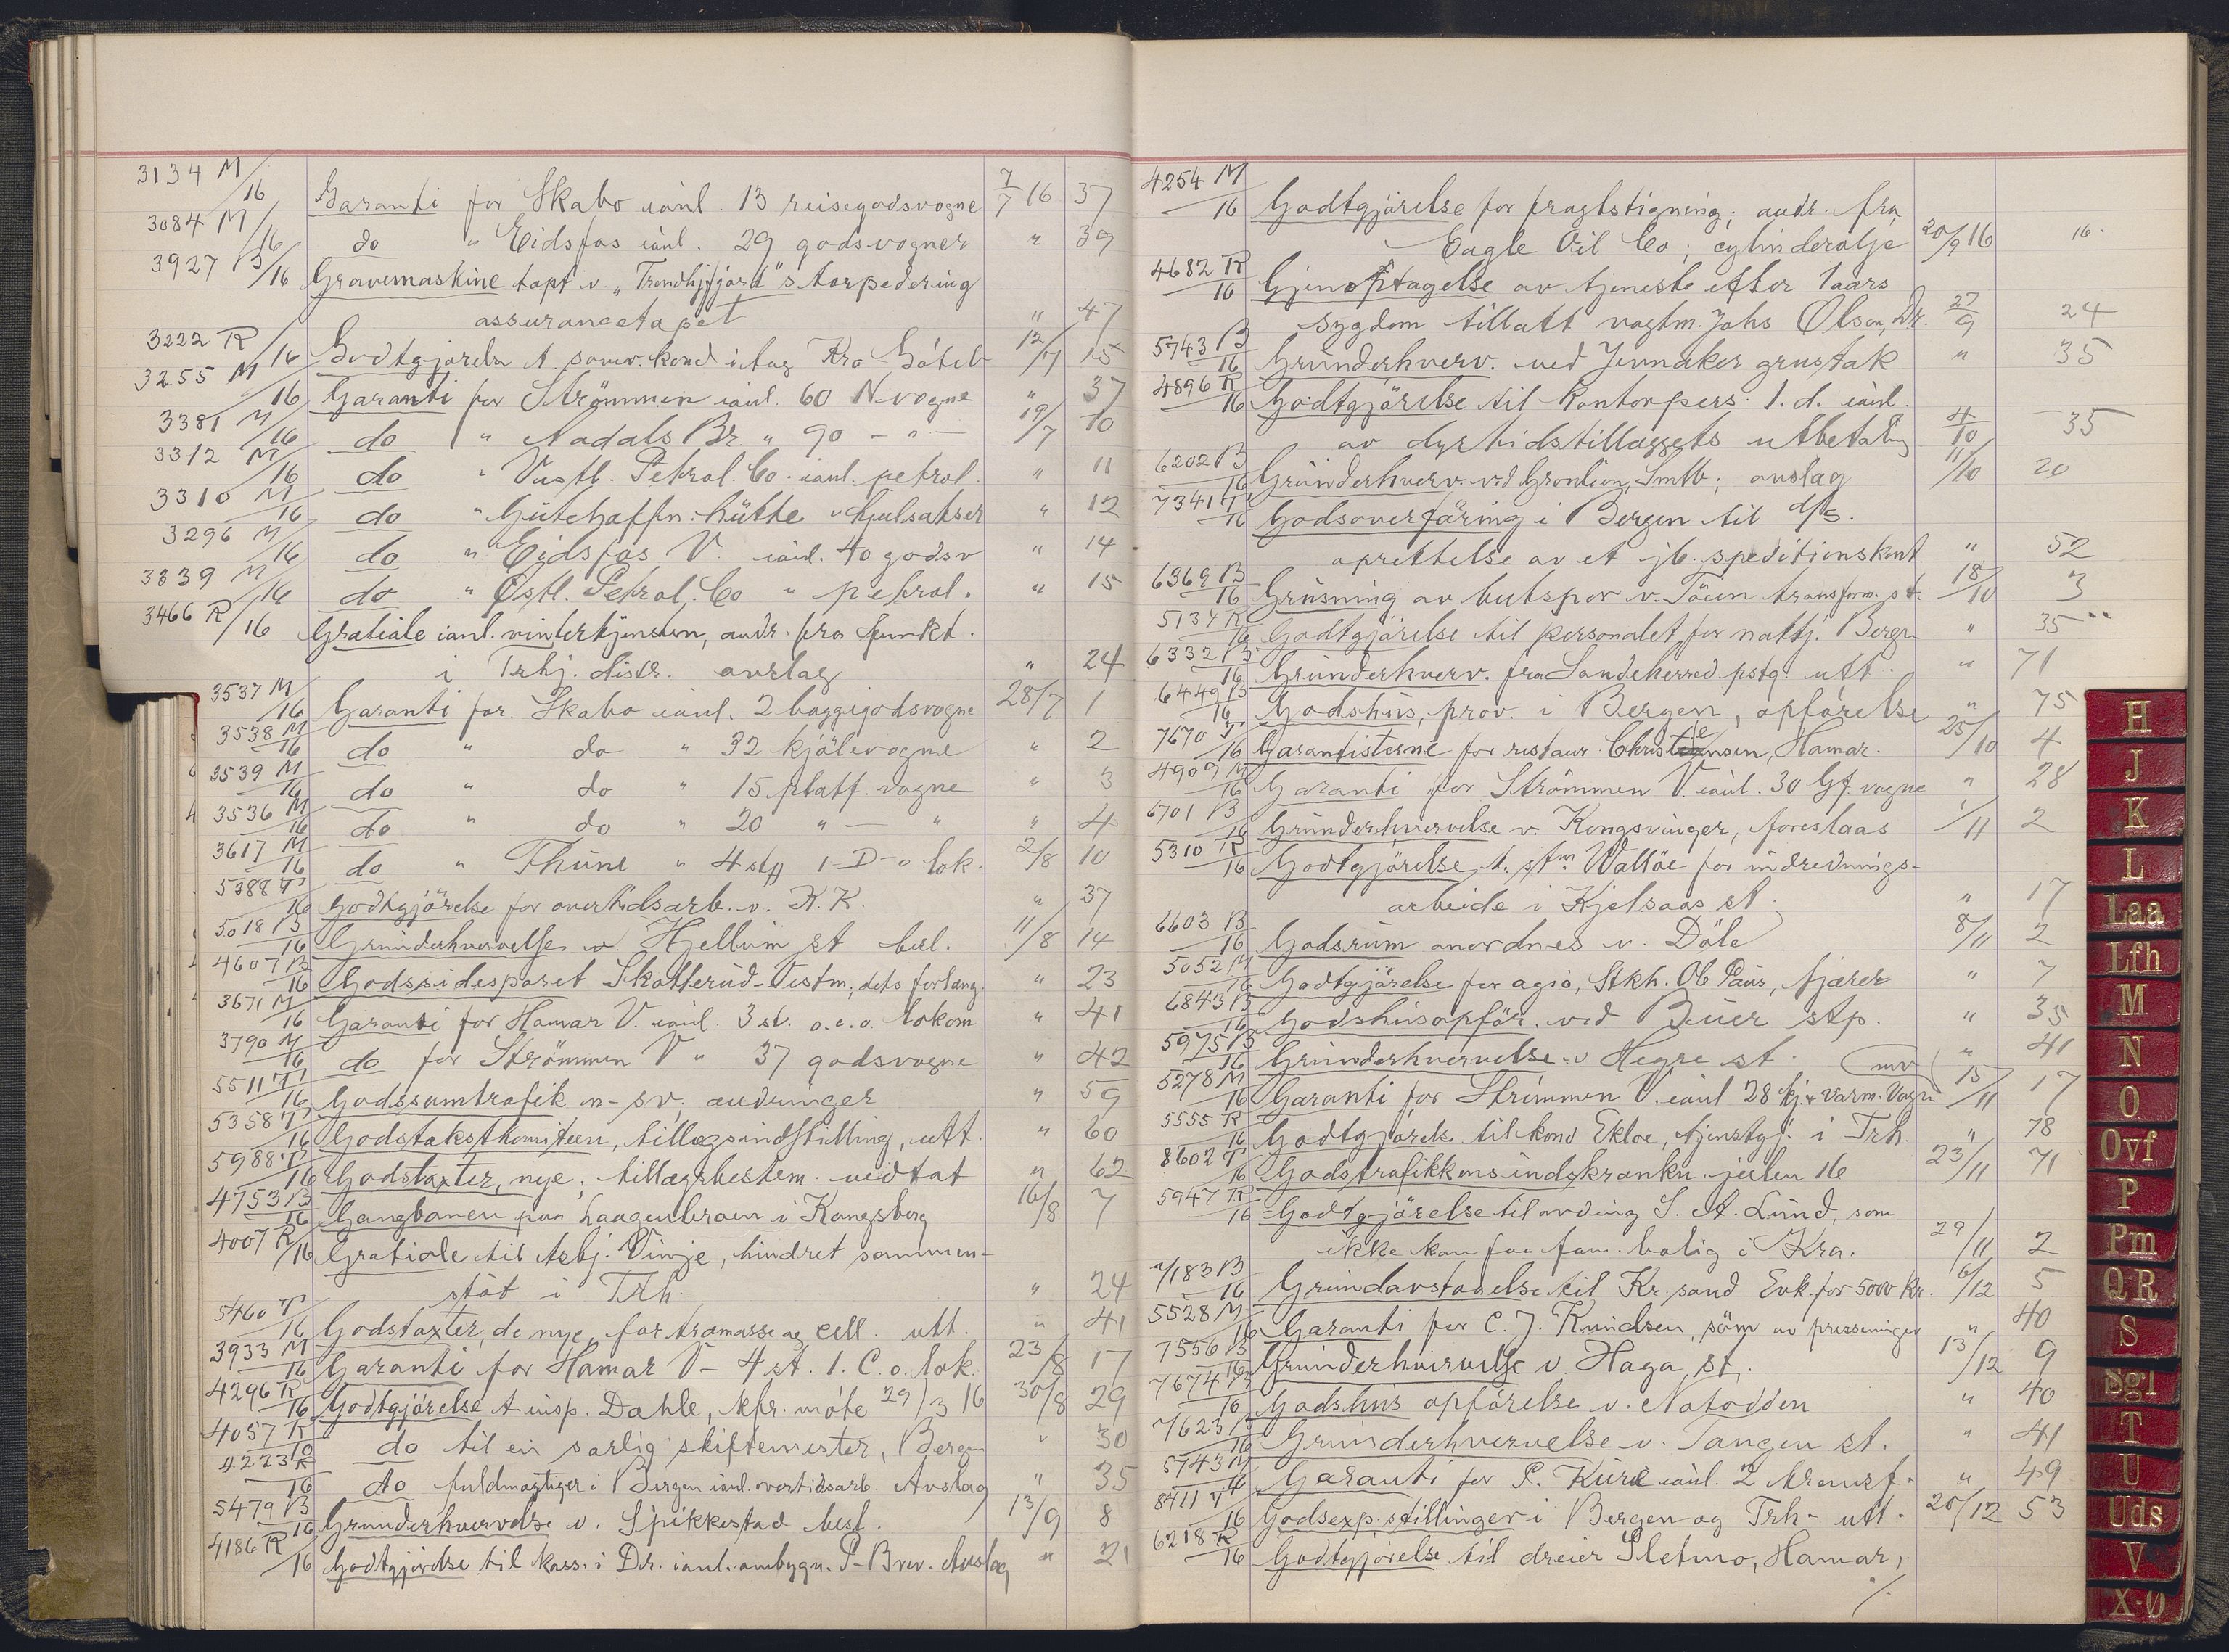 3134 M/16 Garanti for Skabo ianl. 13 reisegodsvogne 7/7 16 37
3084 M/16 do " Eidsfos ianl. 29 godsvogner " 39
3927 B/16 Gravemaskine tapt v. "Trondhjfjord"s torpedering
assurancetapet " 47
3222 R/16 Godtgjörelse t. sovev. kond i tog Kra Göteb 12/7 15
3255 M/16 Garanti for Strömmen ianl. 60 N-vogne " 37
3381 M/16 do " Aadals Br. " 90 - " - 19/7 10
3312 M/16 do " Vestl. Petrol. Co. ianl. petrol. " 11
3310 M/16 do " Gütehoffn. hütte " hjulsatser " 12
3296 M/16 do " Eidsfos V. ianl. 40 godsv " 14
3339 M/16 do " Östl. Petrol. Co " petrol. " 15
3466 R/16 Gratiale ianl. vintertjensten, andr. fra funkt.
i Trhj. distr. avslag " 24
3537 M/16 Garanti for Skabo ianl. 2 baggigodsvogne 28/7 1
3538 M/16 do " do " 32 kjölevogne " 2
3539 M/16 do " do " 15 platf. vogne " 3
3536 M/16 do " do " 20 " - " " 4
3617 M/16 do " Thune " 4 st 1-D-o lok. 2/8 10
5388 T/16 Godtgjörelse for overtidsarb. v. K.K. " 37
5018 B/16 Grunderhvervelse v. Hjellum st bel. 11/8 14
4607 B/16 Godssidesporet Skotterud-Vestm, dets forlæng. " 23
3671 M/16 Garanti for Hamar V. ianl. 3 st. o.c.o. lokom " 41
3790 M/16 do for Strömmen V " 37 godsvogne " 42
5511 T/16 Godssamtrafik n-sv, endringer " 59
5358 T/16 Godstakstkomiteen, tillægsindstilling, utt. " 60
5988 T/16 Godstaxter, nye, tillægsbestem. vedtat " 62
4753 B/16 Gangbanen paa Laagenbroen i Kongsberg 16/8 7
4007 R/16 Gratiale til Asbj. Vinje, hindret sammen-
stöt i Trh. " 24
5460 T/16 Godstaxter, de nye, for tremasse og cell. utt. " 41
3933 M/16 Garanti for Hamar V - 4 st. 1. C. o. lok. 23/8 17
4296 R/16 Godtgjörelse t insp. Dahle, kfr. möte 29/3 16 30/8 29
4057 R/16 do til en særlig skiftemester, Bergen " 30
4223 R/16 do fuldmægtiger i Bergen ianl. overtidsarb. Avslag " 35
5479 B/16 Grunderhvervelse v. Spikkestad best. 13/9 8
4186 R/16 Godtgjörelse til kass. i Dr. ianl. ombygn. P-Brev. Avslag " 21
4254 M/16 Godtgjörelse for fragtstigning, andr. fra
Eagle Oil Co; cylinderolje 20/9 16 16.
4682 R/16 Gjenoptagelse av tjeneste efter 1 aars
sygdom tillatt vagtm. Johs Olsen, Dr. 27/9 24
5743 B/16 Grunderhverv. ved Jevnaker grustak " 35
4896 R/16 Godtgjörelse til Kontorpers. 1. d. ianl.
av dyrtidstillæggets utbetaling 4/10 35
6202 B/16 Grunderhverv. ved Gronlien, Smlb; avslag 11/10 20
7341 T/16 Godsoverföring i Bergen til d/s.
oprettelse av et jb. speditionskont. " 52
6369 B/16 Grusning av butspor v. Töien transform. st. 18/10 3
5134 R/16 Godtgjörelse til personalet for nattj. Bergen " 35
6332 B/16 Grunderhverv. fra Sandeherred pstg. utt. " 71
6449 B/16 Godshus, prov. i Bergen, opförelse " 75
7670 T/16 Garantisterne for restaur. Christensen, Hamar. 25/10 4
4909 M/16 Garanti for Strömmen V. ianl. 30 Gf. vogne " 28
6701 B/16 Grunderhvervelse v. Kongsvinger, foreslaas 1/11 2
5310 R/16 Godtgjörelse t. stm Wallöe for indrednings-
arbeide i Kjelsaas st. " 17
6603 B/16 Godsrum anordnes v. Döle 8/11 2
5052 M/16 Godtgjörelse for agio, Stkh. Ob Paus, fjærer " 7
6843 B/16 Godshusopför. ved Buer stp. " 35
5975 B/16 Grunderhvervelse v Hegre st. " 41
5278 M/16 Garanti for Strömmen V. ianl 28 kj. & varm. Vogn 15/11 17
5555 R/16 Godtgjörelse til kond Ekloe, tjenestgj. i Trh. " 78
8602 T/16 Godstrafikkens indskrænkn. julen 16 23/11 71
5947 R/16 Godtgjörelse til avding S. A. Lund, som
ikke kan faa fam. bolig i Kra. 29/11 2
7183 B/16 Grundavstaaelse til Kr.sand Evk. for 5000 kr. 6/12 5
5528 M/16 Garanti for C. J. Knudsen, söm av presseninger " 40
7556 B/16 Grunderhvervelse v. Haga st. 13/12 9
7674 B/16 Godshus opförelse v. Notodden " 40
7623 B/16 Grunderhvervelse v. Tangen st. " 41
5743 M/16 Garanti for P. Kure ianl. 2 transf. " 49
8411 T/16 Godsexp. stillinger i Bergen og Trh - utt. 20/12 53
6218 R/16 Godtgjörelse til dreier Sletmo, Hamar,
H
J
K
L
Laa
Lfh
M
N
O
Ovf
P
Pm
QR
S
Sgl
T
U
Uds
V
X-Ø